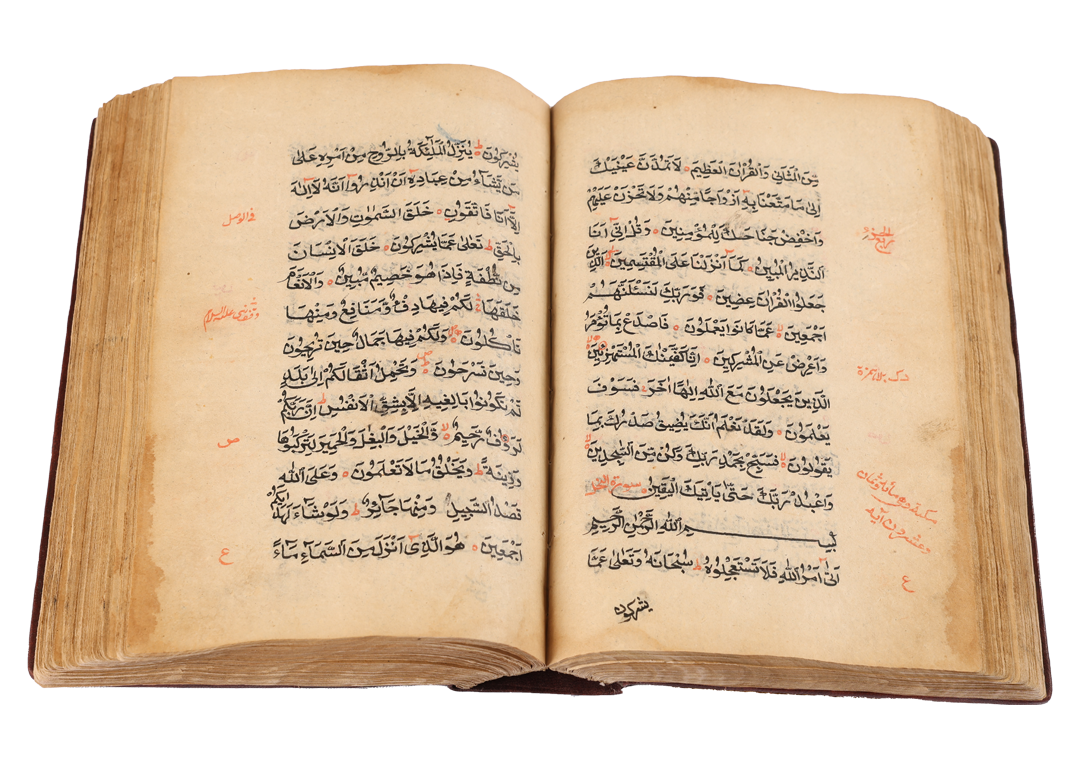 مِنَ الْمَثَانِي وَالْقُرْآنَ الْعَظِيمَ لَا تَمُدَّنَّ عَيْنَيْكَ
إِلَى مَا مَتَّعْنَا بِهِ أَزْوَاجًا مِنْهُمْ وَلَا تَحْزَنْ عَلَيْهِمْ
وَاخْفِضْ جَنَاحَكَ لِلْمُؤْمِنِينَ وَقُلْ إِنِّي أَنَا
النَّذِيرُ الْمُبِينُ كَمَا أَنْزَلْنَا عَلَى الْمُقْتَسِمِينَ الَّذِينَ
جَعَلُوا الْقُرْآنَ عِضِينَ فَوَرَبِّكَ لَنَسْئَلَنَّهُمْ
أَجْمَعِينَ عَمَّا كَانُوا يَعْمَلُونَ فَاصْدَعْ بِمَا تُؤْمَرُ
وَأَعْرِضْ عَنِ الْمُشْرِكِينَ إِنَّا كَفَيْنَاكَ الْمُسْتَهْزِئِينَ
الَّذِينَ يَجْعَلُونَ مَعَ اللَّهِ إِلَهًا آخَرَ فَسَوْفَ
يَعْلَمُونَ وَلَقَدْ نَعْلَمُ أَنَّكَ يَضِيقُ صَدْرُكَ بِمَا
يَقُولُونَ فَسَبِّحْ بِحَمْدِ رَبِّكَ وَكُنْ مِنَ السَّاجِدِينَ
وَاعْبُدْ رَبَّكَ حَتَّى يَأْتِيَكَ الْيَقِينُ سورة النحل
بِسْمِ اللَّهِ الرَّحْمَنِ الرَّحِيمِ
أَتَى أَمْرُ اللَّهِ فَلَا تَسْتَعْجِلُوهُ ط سُبْحَانَهُ وَتَعَالَى عَمَّا
يشركون
ع
يُشْرِكُونَ يُنَزِّلُ الْمَلَائِكَةَ بِالرُّوحِ مِنْ أَمْرِهِ عَلَى
مَنْ يَشَاءُ مِنْ عِبَادِهِ أَنْ أَنْذِرُوا أَنَّهُ لَا إِلَهَ
إِلَّا أَنَا فَاتَّقُونِ خَلَقَ السَّمَوَاتِ وَالْأَرْضَ
بِالْحَقِّ ط تَعَالَى عَمَّا يُشْرِكُونَ خَلَقَ الْإِنْسَانَ
مِنْ نُطْفَةٍ فَإِذَا هُوَ خَصِيمٌ مُبِينٌ وَالْأَنْعَامَ
خَلَقَهَا لَكُمْ فِيهَا دِفْءٌ وَمَنَافِعُ وَمِنْهَا
تَأْكُلُونَ وَلَكُمْ فِيهَا جَمَالٌ حِينَ تُرِيحُونَ
وَحِينَ تَسْرَحُونَ وَتَحْمِلُ أَثْقَالَكُمْ إِلَى بَلَدٍ
لَمْ تَكُونُوا بَالِغِيهِ إِلَّا بِشِقِّ الْأَنْفُسِ ط إِنَّ رَبَّكُمْ
لَرَءُوفٌ رَحِيمٌ وَالْخَيْلَ وَالْبِغَالَ وَالْحَمِيرَ لِتَرْكَبُوهَا
وَزِينَةً ط وَيَخْلُقُ مَا لَا تَعْلَمُونَ وَعَلَى اللَّهِ
قَصْدُ السَّبِيلِ وَمِنْهَا جَائِرٌ ط وَلَوْ شَاءَ لَهَدَاكُمْ
أَجْمَعِينَ هُوَ الَّذِي أَنْزَلَ مِنَ السَّمَاءِ مَاءً
ص
ع